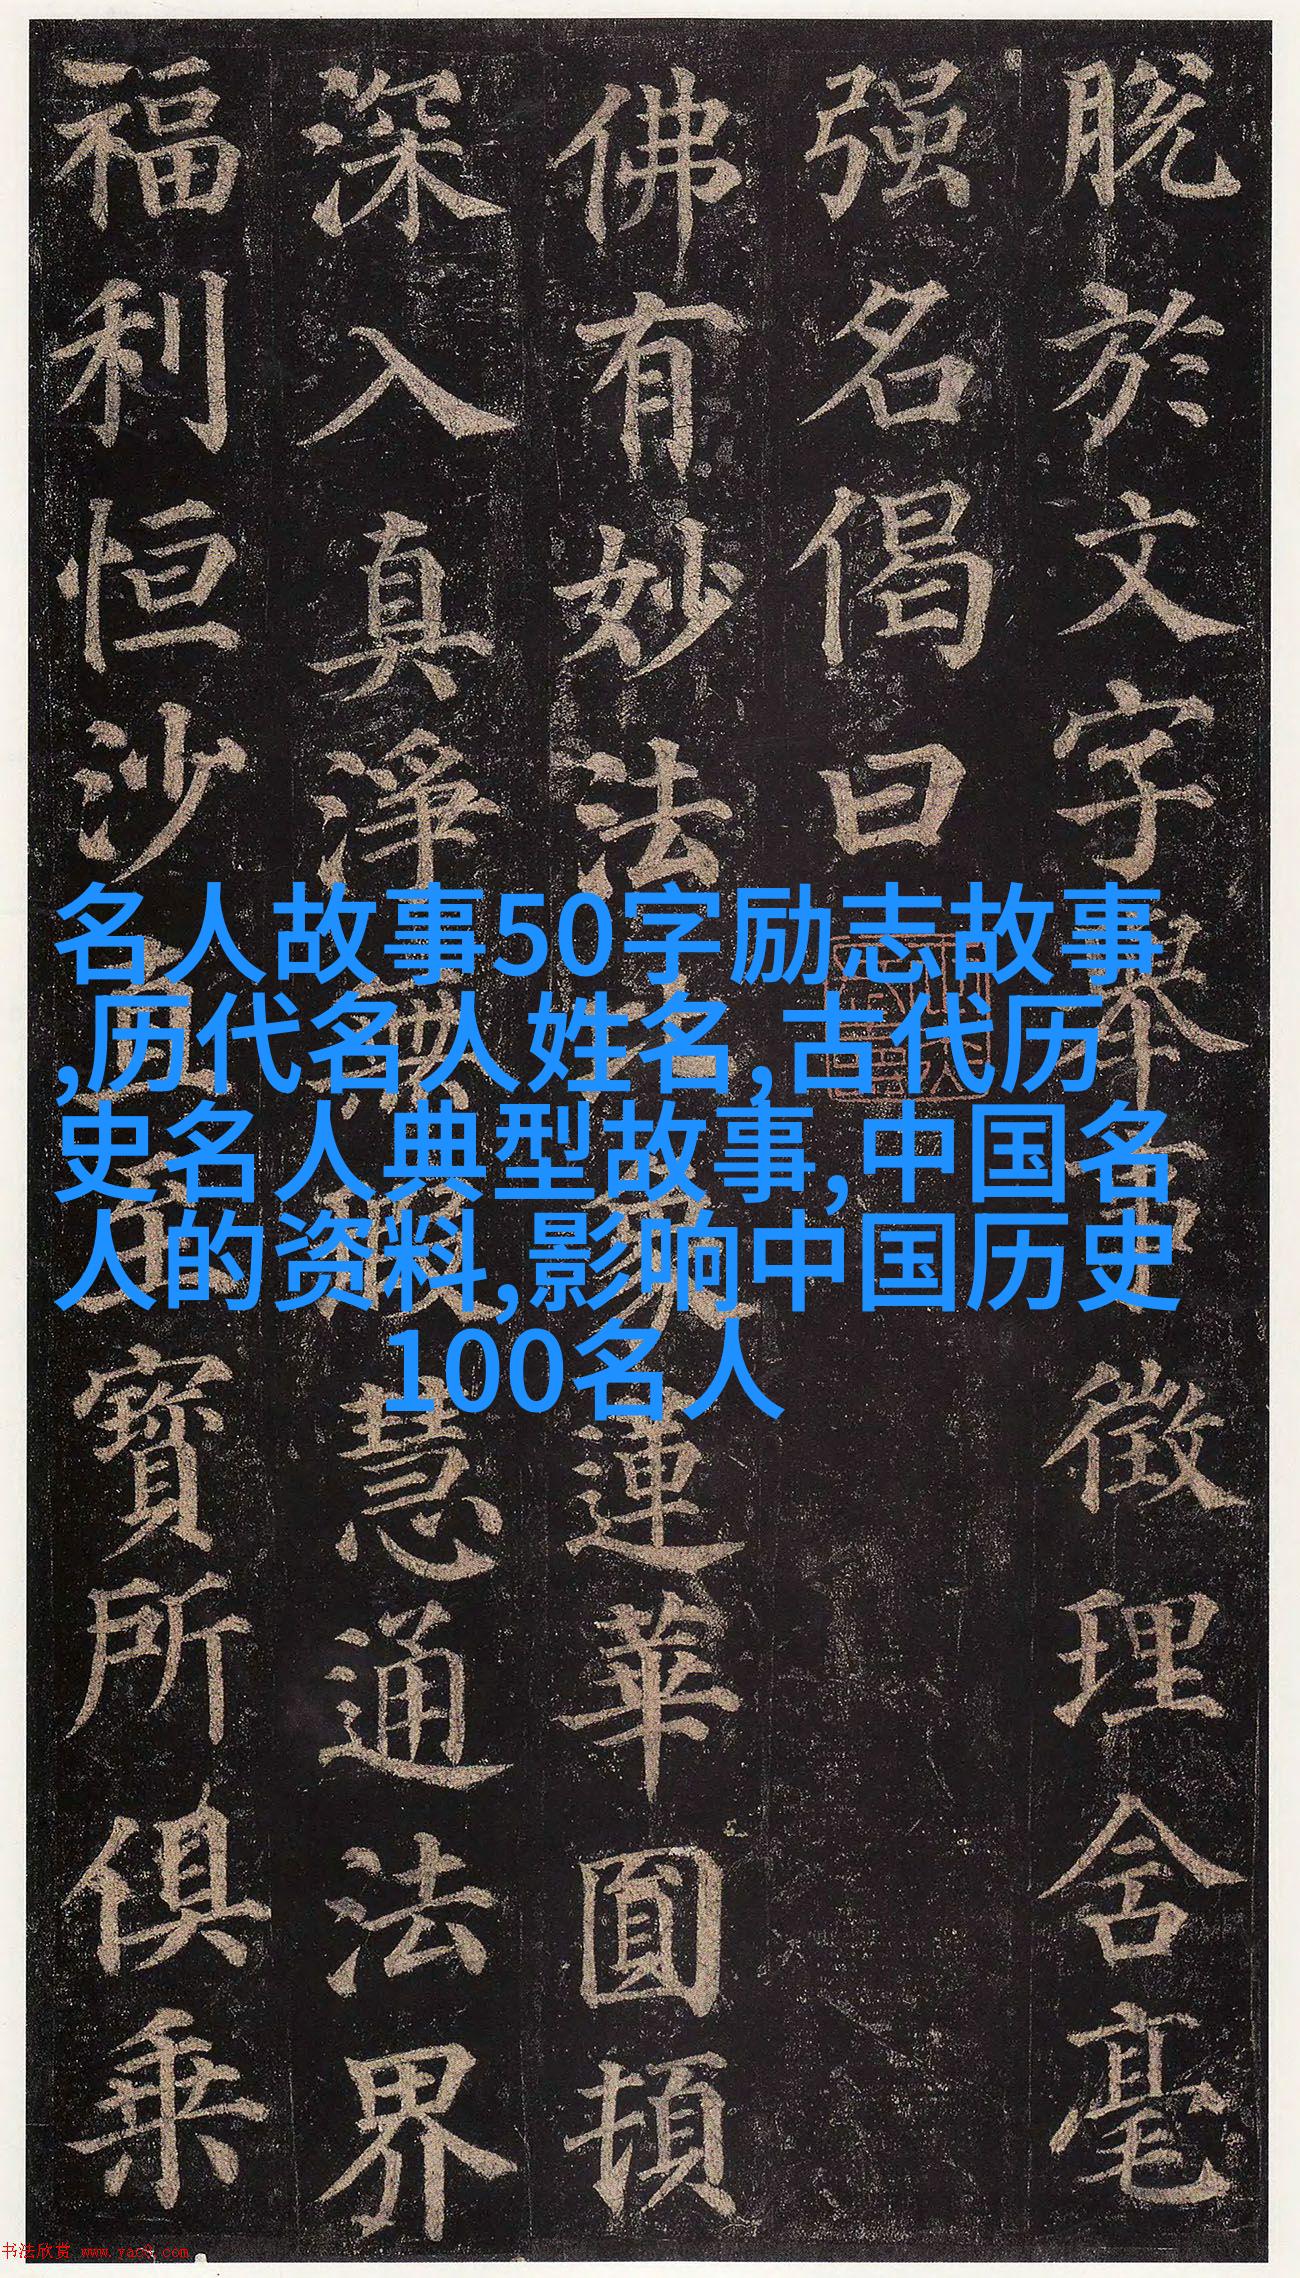 脱於文字舉事徵理含毫
强名偈曰
佛有妙法象蓮華圓頓
深入真淨無瑕慧通法界
福利恒沙直至寶所俱乗
名人故事50字励志故事
,历代名人姓名,古代历
史名人典型故事,中国名
人的资料,影响中国历史
100名人
书法欣赏 www.yac8.com